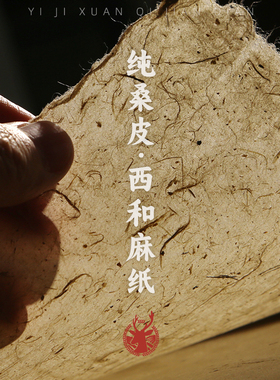 YI JI XUAN QI
纯桑皮·西和麻纸